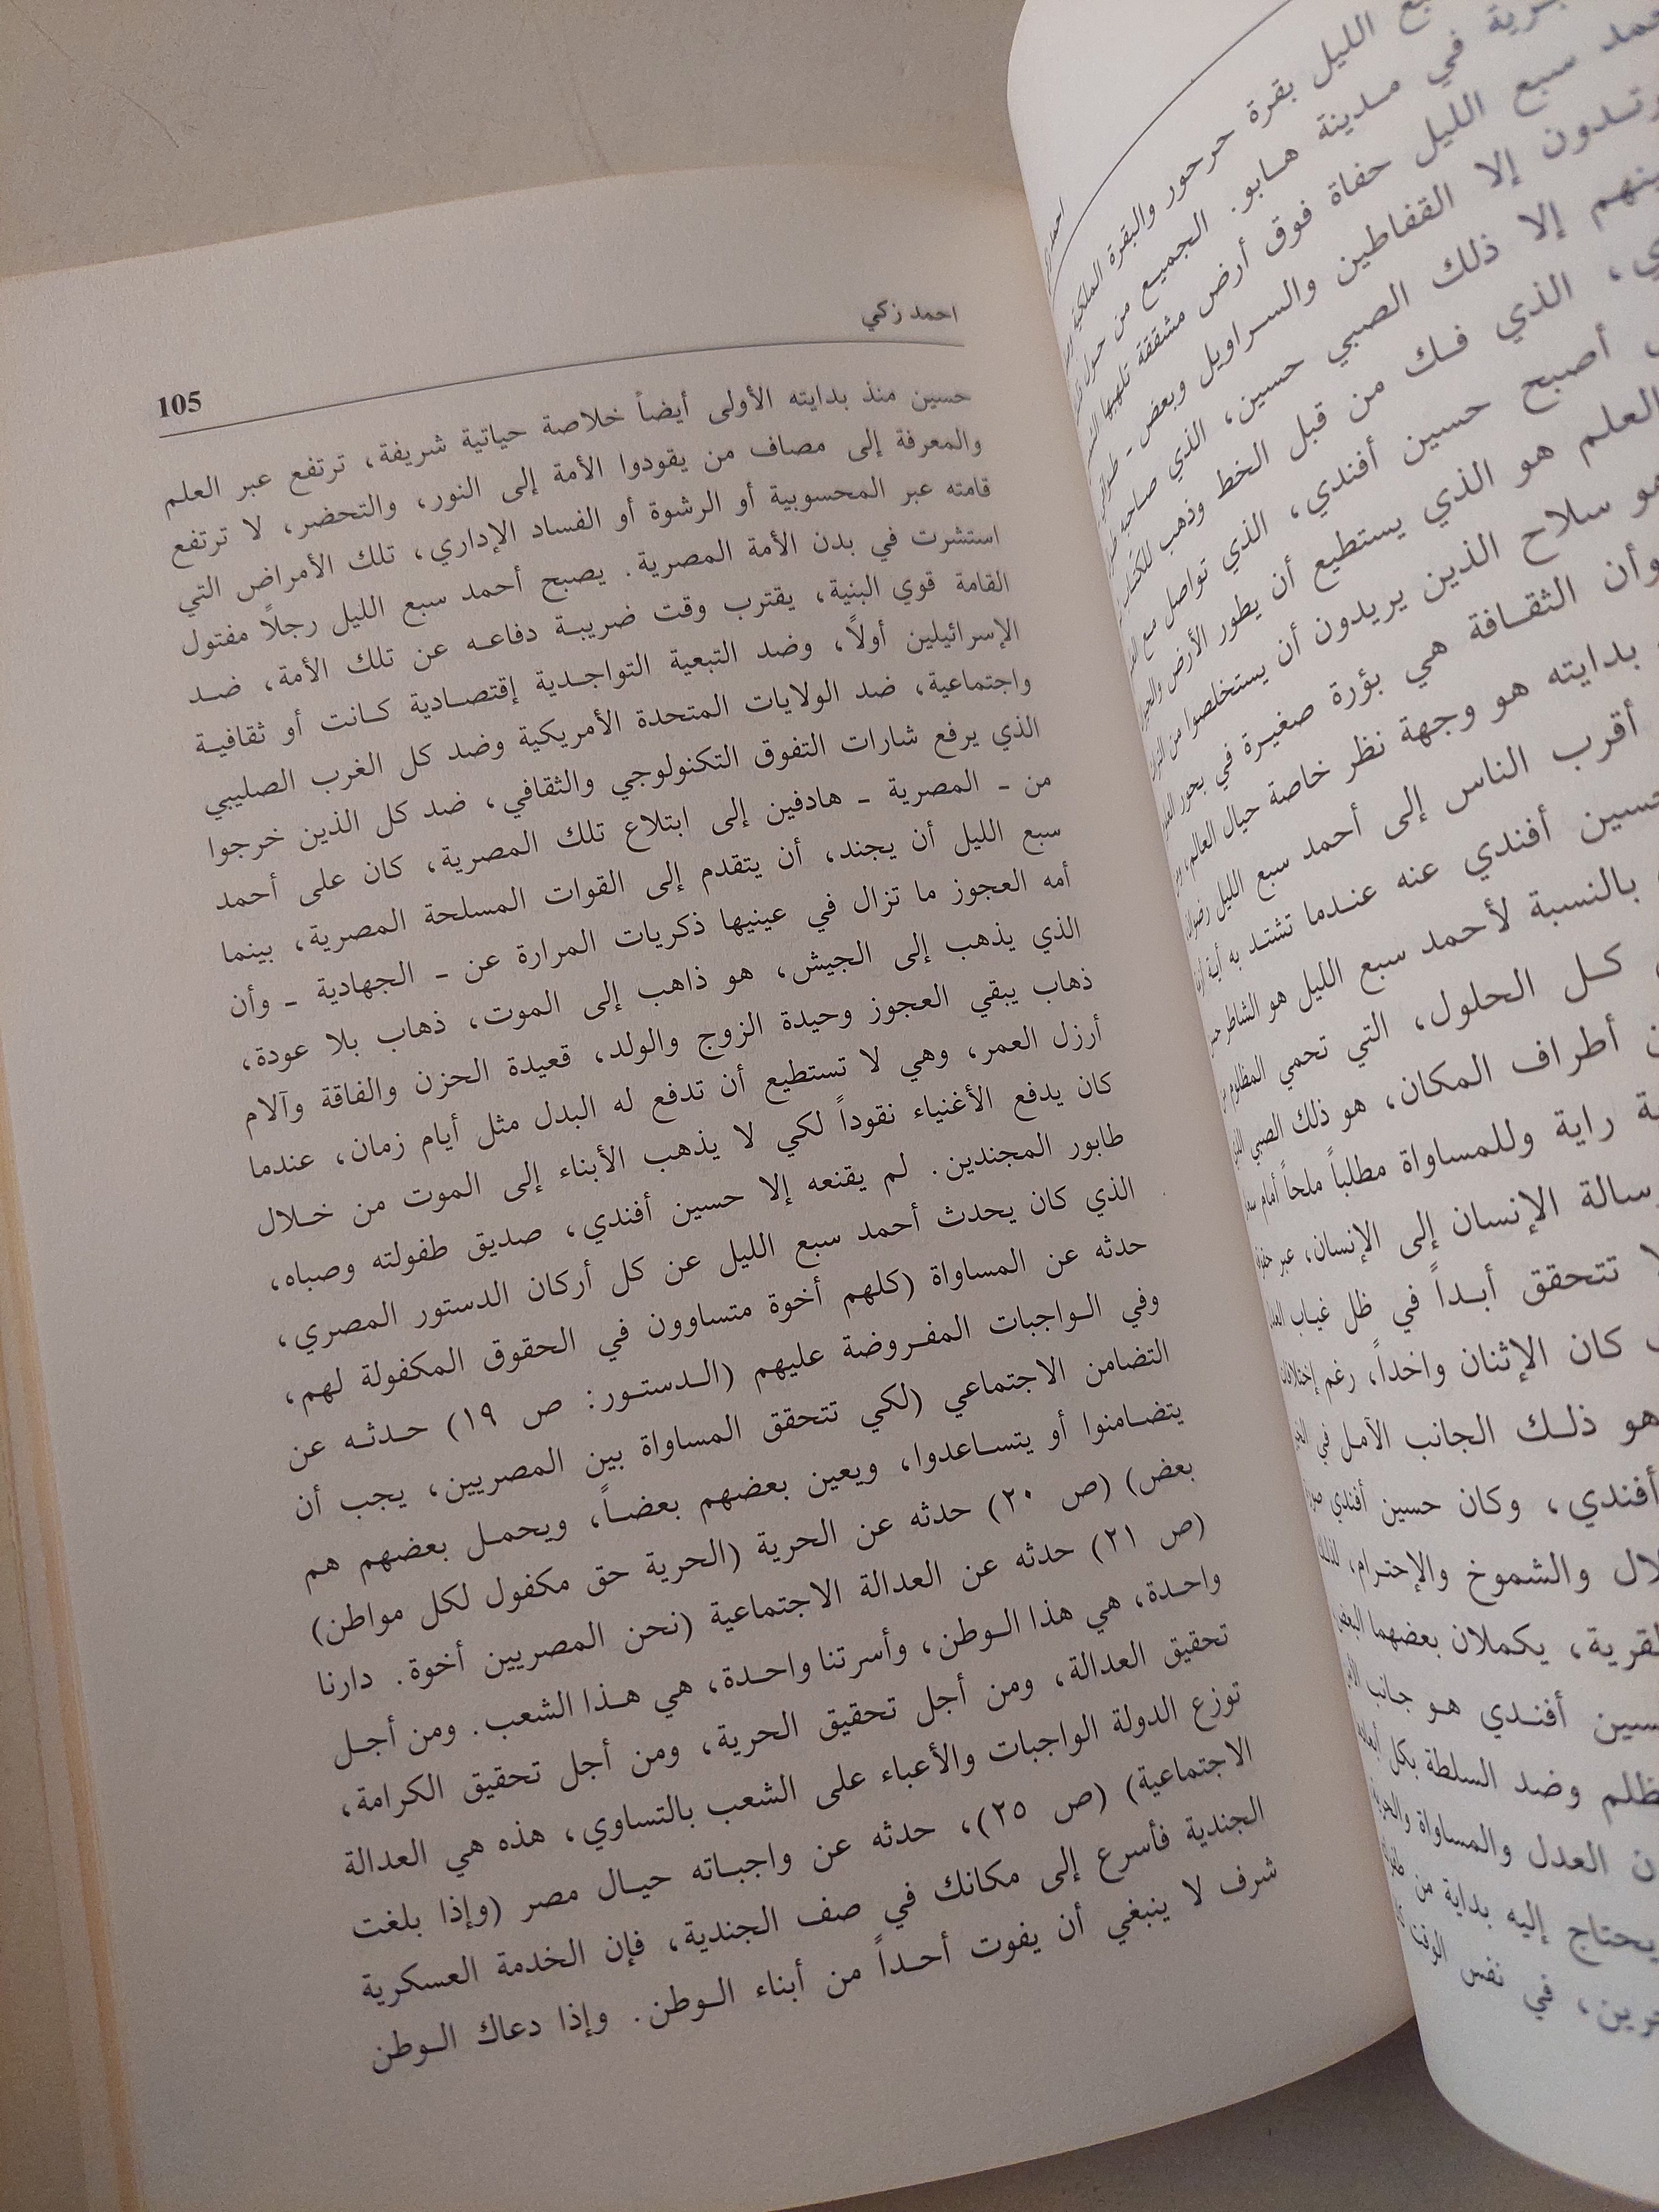 احمد زكي
105
حسين منذ بدايته الأولى أيضاً خلاصة حياتية شريفة، ترتفع عبر العلم
والمعرفة إلى مصاف من يقودوا الأمة إلى النور، والتحضر، لا ترتفع
قامته عبر المحسوبية أو الرشوة أو الفساد الإداري، تلك الأمراض التي
استشرت في بدن الأمة المصرية. يصبح أحمد سبع الليل رجلاً مفتول
القامة قوي البنية، يقترب وقت ضريبة دفاعه عن تلك الأمة، ضد
الإسرائيلين أولاً، وضد التبعية التواجدية إقتصادية كانت أو ثقافية
واجتماعية، ضد الولايات المتحدة الأمريكية وضد كل الغرب الصليبي
الذي يرفع شارات التفوق التكنولوجي والثقافي، ضد كل الذين خرجوا
من - المصرية - هادفين إلى ابتلاع تلك المصرية، كان على أحمد
سبع الليل أن يجند، أن يتقدم إلى القوات المسلحة المصرية، بينما
أمه العجوز ما تزال في عينيها ذكريات المرارة عن - الجهادية - وأن
الذي يذهب إلى الجيش، هو ذاهب إلى الموت، ذهاب بلا عودة،
ذهاب يبقي العجوز وحيدة الزوج والولد، قعيدة الحزن والفاقة وآلام
أرزل العمر، وهي لا تستطيع أن تدفع له البدل مثل أيام زمان، عندما
كان يدفع الأغنياء نقوداً لكي لا يذهب الأبناء إلى الموت من خلال
طابور المجندين. لم يقنعه إلا حسين أفندي، صديق طفولته وصباه،
الذي كان يحدث أحمد سبع الليل عن كل أركان الدستور المصري،
حدثه عن المساواة (كلهم أخوة متساوون في الحقوق المكفولة لهم،
وفي الواجبات المفروضة عليهم (الدستور: ص ١٩) حدثه عن
التضامن الاجتماعي (لكي تتحقق المساواة بين المصريين، يجب أن
يتضامنوا أو يتساعدوا، ويعين بعضهم بعضاً، ويحمل بعضهم هم
بعض) (ص ٢٠) حدثه عن الحرية (الحرية حق مكفول لكل مواطن)
(ص ٢١) حدثه عن العدالة الاجتماعية (نحن المصريين أخوة. دارنا
واحدة، هي هذا الوطن، وأسرتنا واحدة، هي هذا الشعب. ومن أجل
تحقيق العدالة، ومن أجل تحقيق الحرية، ومن أجل تحقيق الكرامة،
توزع الدولة الواجبات والأعباء على الشعب بالتساوي، هذه هي العدالة
الاجتماعية) (ص ٢٥)، حدثه عن واجباته حيال مصر (وإذا بلغت
الجندية فأسرع إلى مكانك في صف الجندية، فإن الخدمة العسكرية
شرف لا ينبغي أن يفوت أحداً من أبناء الوطن. وإذا دعاك الوطن
الليل بقرة حرحور والبقرة الملكية
في مدينة هابو. الجميع من حول
سبع الليل حفاة فوق أرض مشققة تلهبها
إلا القفاطين والسراويل وبعض -
إلا ذلك الصبي حسين، الذي صاحبه
الذي فك من قبل الخط وذهب
أصبح حسين أفندي، الذي تواصل مع
العلم هو الذي يستطيع أن يطور الأرض
سلاح الذين يريدون أن يستخلصوا من
وأن الثقافة هي بؤرة صغيرة في بحور
بدايته هو وجهة نظر خاصة حيال العالم،
أقرب الناس إلى أحمد سبع الليل
حسين أفندي عنه عندما تشتد به أية
بالنسبة لأحمد سبع الليل هو الشاطر
كل الحلول، التي تحمي المظلوم
أطراف المكان، هو ذلك الصبي
راية وللمساواة مطلباً ملحاً أمام
رسالة الإنسان إلى الإنسان، عبر
تتحقق أبداً في ظل غياب
كان الإثنان واحداً، رغم
هو ذلك الجانب الآمل في
أفندي، وكان حسين أفندي
والشموخ والإحترام،
القرية، يكملان بعضهما
حسين أفندي هو جانب
وضد السلطة بكل
العدل والمساواة
يحتاج إليه بداية من
في نفس الوقت